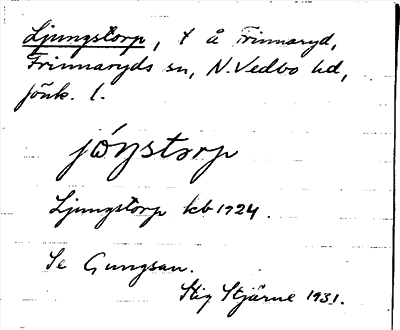 Ljungstorp, t å Frinnaryd,
Frinnaryds sn, N. Vedbo hd,
Jönk. l.
jóŋstorp
Ljungstorp kb 1724.
Se Gungsan.
Stig Stjärne 1931.